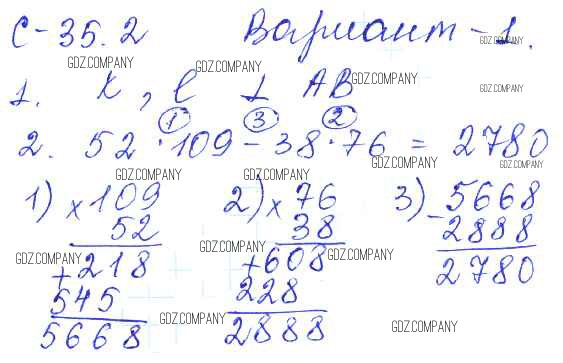 С-35.2 Вариант-1.
1. К, С ⊥ АВ
2. 52 · 109 - 38 · 76 = 2780
① ③ ②
1) × 109 2) × 76 3) - 5668
52 38 2888
+ 218 + 608 2780
545 228
5668 2888
GDZ.COMPANY GDZ.COMPANY GDZ.COMPANY
GDZ.COMPANY GDZ.COMPANY
GDZ.COMPANY GDZ.COMPANY
GDZ.COMPANY GDZ.COMPANY
GDZ.COMPANY GDZ.COMPANY GDZ.COMPANY
GDZ.COMPANY GDZ.COMPANY